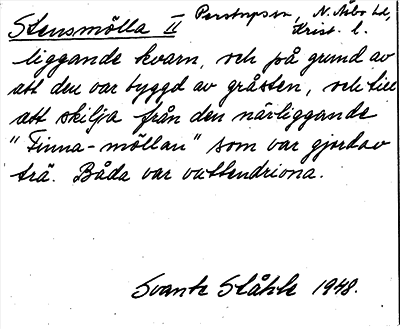 Stensmölla II Perstorpssn, N. Åsbo hd,
Krist. l.
liggande kvarn, och på grund av
att den var byggd av gråsten, och till
att skilja från den närliggande
"Finna-möllan" som var gjord av
trä. Båda var vattendrivna.
Svante Ståhle 1948.